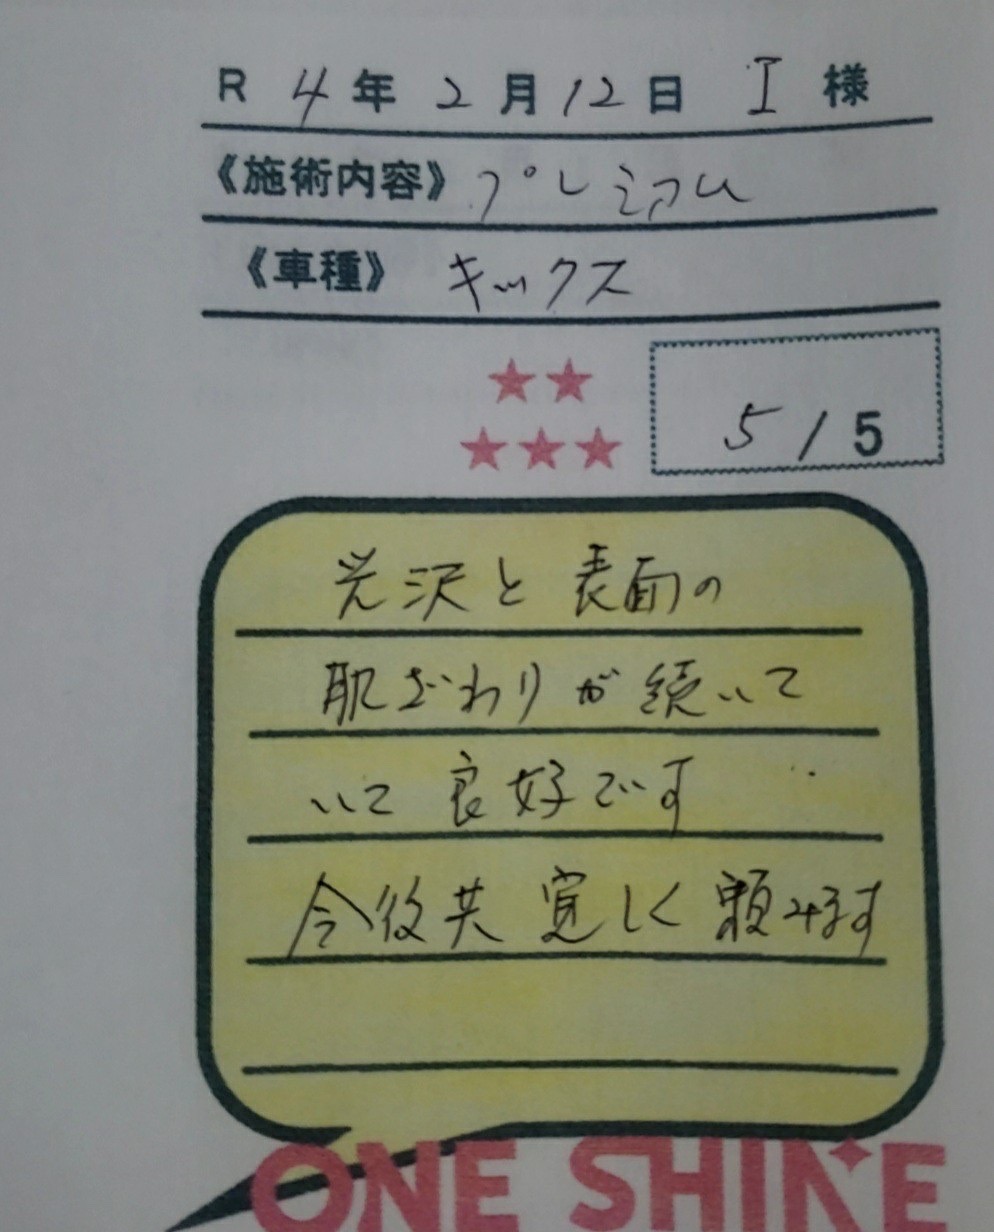 R 4年 2月12日 I 様
《施術内容》プレミアム
《車種》 キックス
5/5
光沢と表面の
肌ざわりが続いて
いて良好です
今後共宜しく頼みます
ONE SHINE